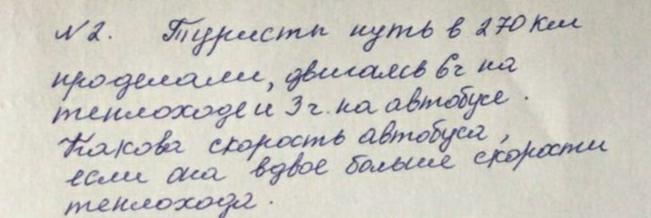 №2. Туристы путь в 270 км
проделали, двигаясь 6ч на
теплоходе и 3 ч. на автобусе.
Какова скорость автобуса,
если она вдвое больше скорости
теплохода.